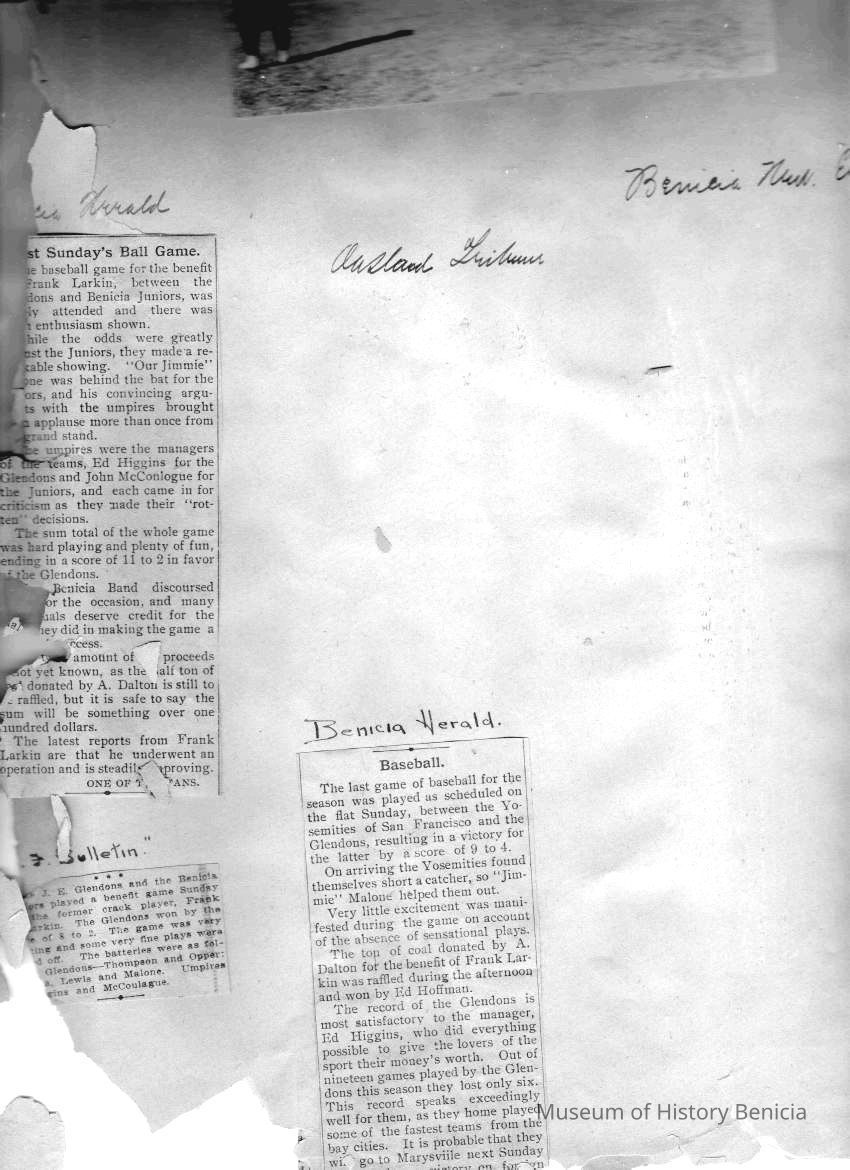 Benicia
Herald
Oakland Tribune
st Sunday's Ball Game.
e baseball game for the benefit
Frank Larkin, between the
dons and Benicia Juniors, was
ly attended and there was
enthusiasm shown.
hile the odds were greatly
st the Juniors, they made a re-
kable showing. "Our Jimmie"
one was behind the bat for the
ors, and his convincing argu-
ts with the umpires brought
applause more than once from
grand stand.
he umpires were the managers
of the teams, Ed Higgins for the
Glendons and John McConlogue for
the Juniors, and each came in for
criticism as they made their "rot-
ten" decisions.
The sum total of the whole game
was hard playing and plenty of fun,
ending in a score of 11 to 2 in favor
of the Glendons.
Benicia Band discoursed
or the occasion, and many
uals deserve credit for the
hey did in making the game a
ccess.
amount of proceeds
not yet known, as the half ton of
donated by A. Dalton is still to
raffled, but it is safe to say the
sum will be something over one
hundred dollars.
The latest reports from Frank
Larkin are that he underwent an
operation and is steadily improving.
ONE OF T FANS.
. F. Bulletin."
J. E. Glendons and the Benicia
ors played a benefit game Sunday
the former crack player, Frank
arkin. The Glendons won by the
e of 8 to 2. The game was very
ting and some very fine plays were
d off. The batteries were as fol-
Glendons—Thompson and Opper;
s, Lewis and Malone. Umpires
gins and McCoulague.
Benicia Herald.
Baseball.
The last game of baseball for the
season was played as scheduled on
the flat Sunday, between the Yo-
semities of San Francisco and the
Glendons, resulting in a victory for
the latter by a score of 9 to 4.
On arriving the Yosemities found
themselves short a catcher, so "Jim-
mie" Malone helped them out.
Very little excitement was mani-
fested during the game on account
of the absence of sensational plays.
The ton of coal donated by A.
Dalton for the benefit of Frank Lar-
kin was raffled during the afternoon
and won by Ed Hoffman.
The record of the Glendons is
most satisfactory to the manager,
Ed Higgins, who did everything
possible to give the lovers of the
sport their money's worth. Out of
nineteen games played by the Glen-
dons this season they lost only six.
This record speaks exceedingly
well for them, as they home played
some of the fastest teams from the
bay cities. It is probable that they
will go to Marysviile next Sunday
victory on
Museum of History Benicia